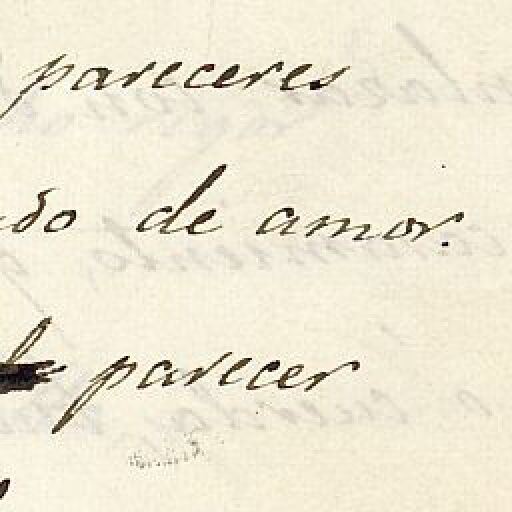 pareceres
do de amor.
parecer